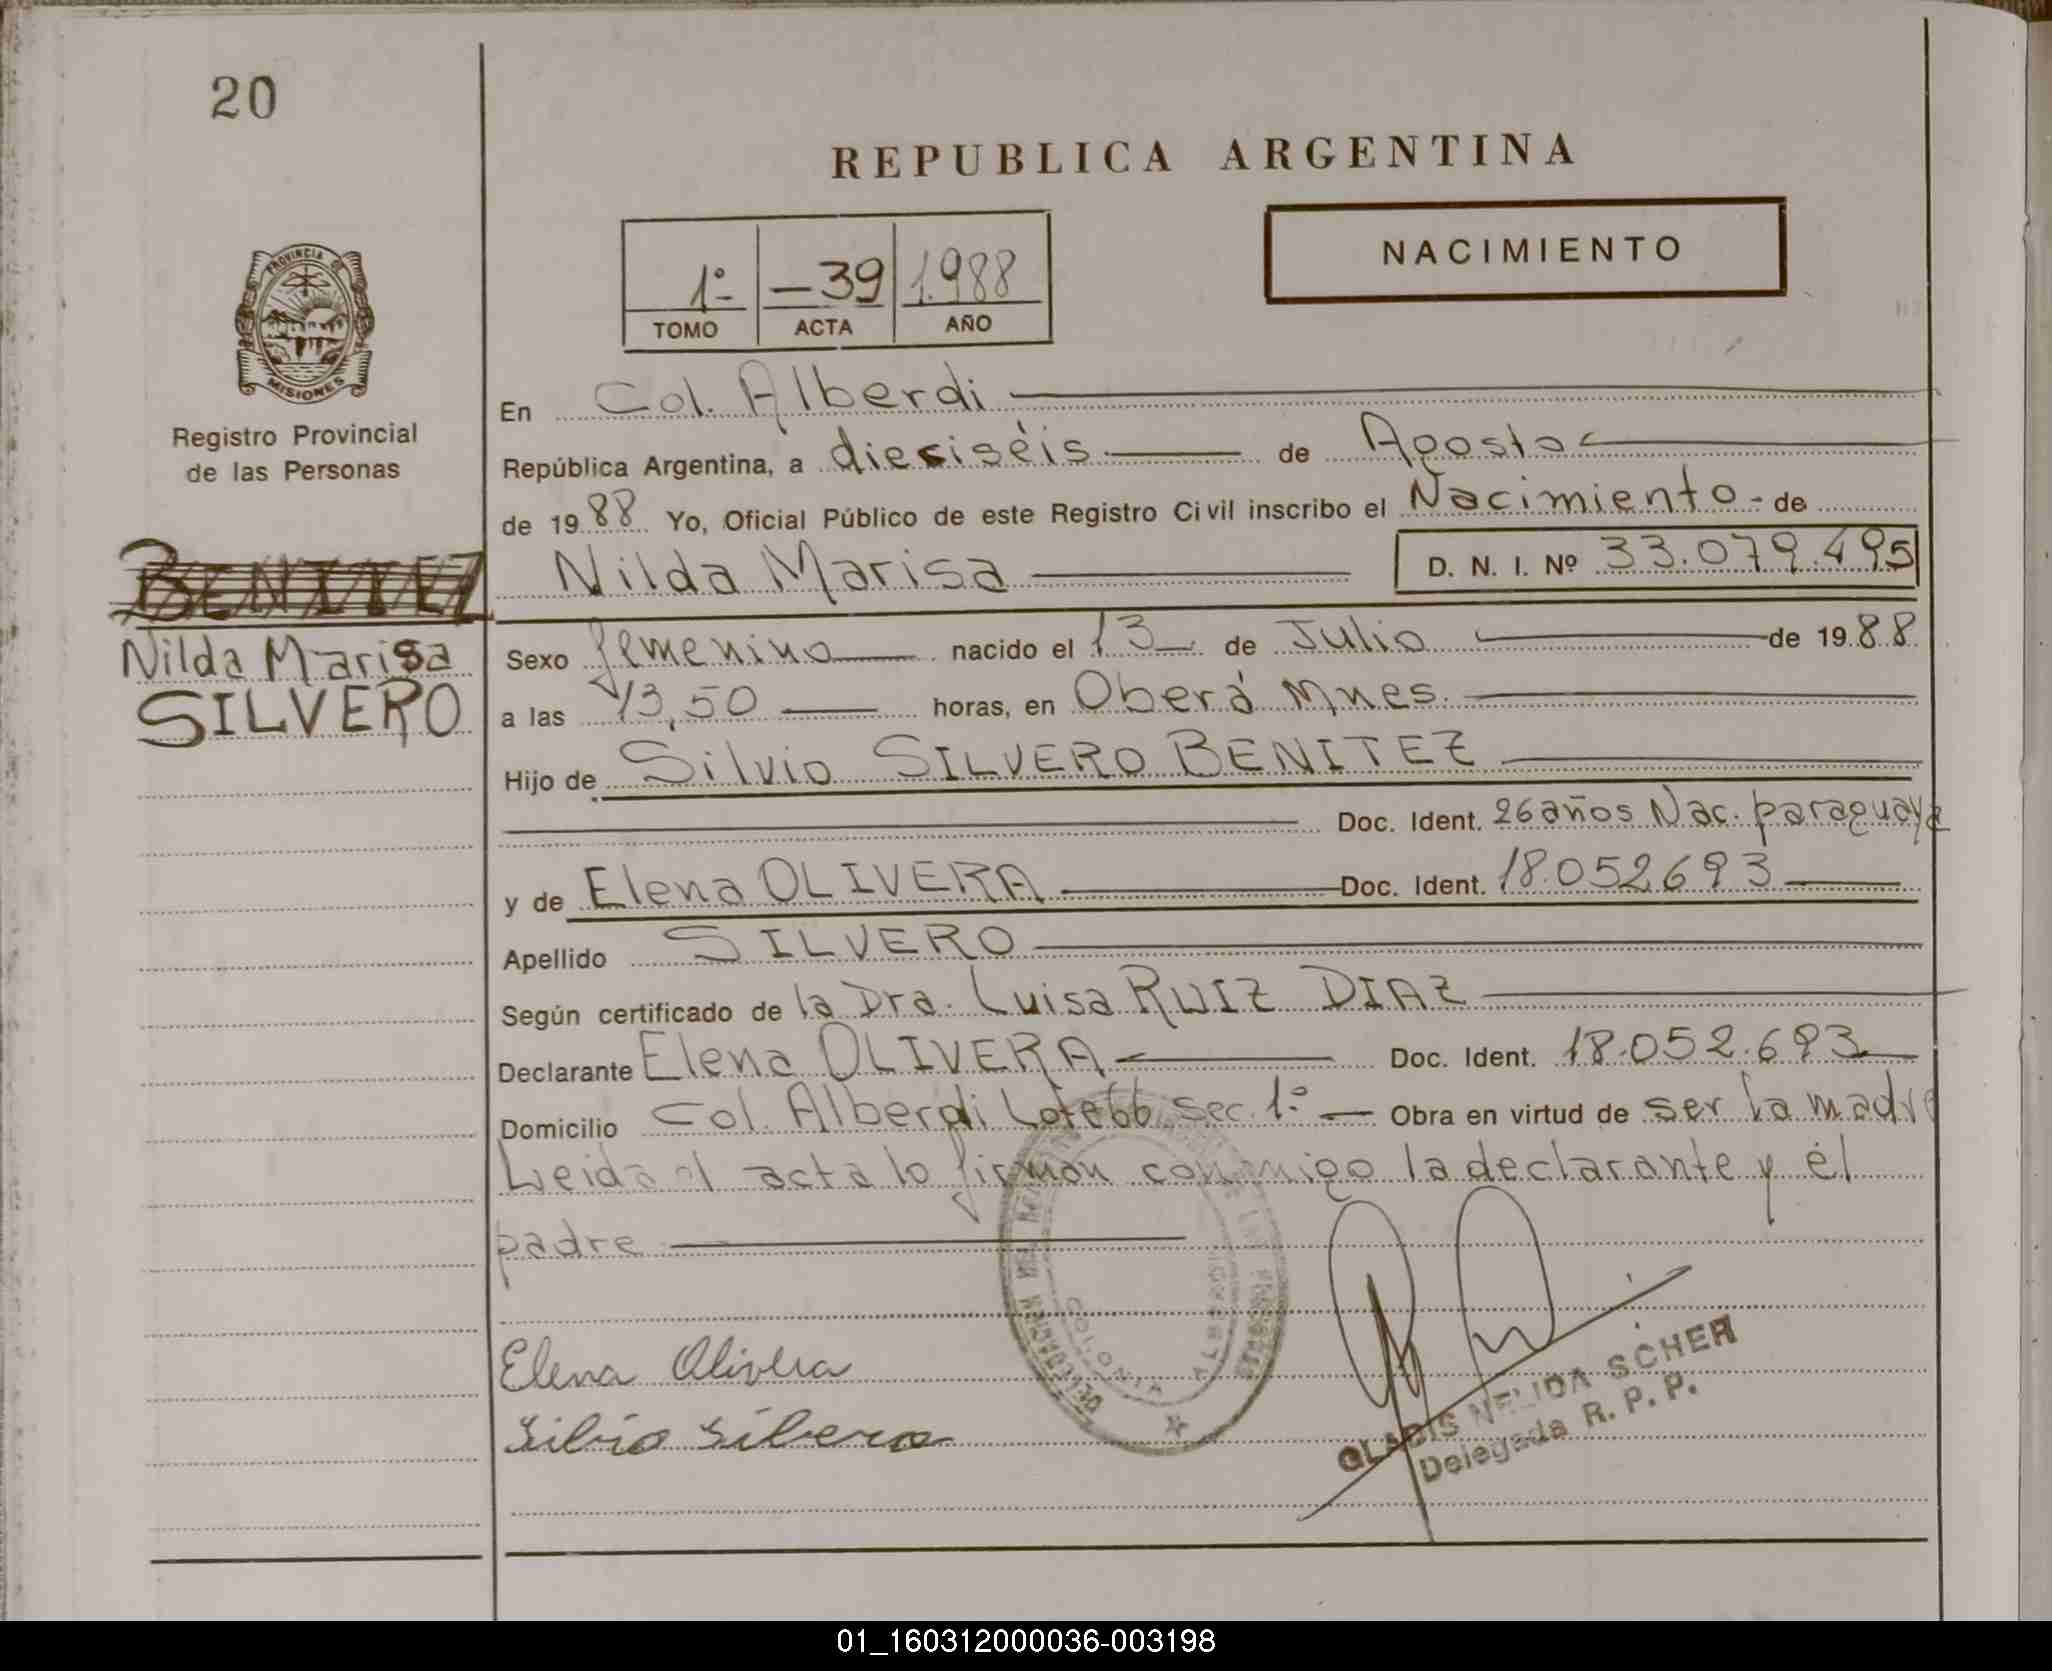 20
REPUBLICA ARGENTINA
NACIMIENTO
1º- -39 1.988
TOMO ACTA AÑO
PROVINCIA DE
MISIONES
Registro Provincial
de las Personas
BENITEZ
Nilda Marisa
SILVERO
En Col. Alberdi
República Argentina, a dieciséis de Agosto
de 1988 Yo, Oficial Público de este Registro Civil inscribo el Nacimiento - de
Nilda Marisa D. N. I. Nº 33.079.495
Sexo femenino nacido el 13 de Julio de 1988
a las 13,50 horas, en Oberá Mnes.
Hijo de Silvio SILVERO BENITEZ
Doc. Ident. 26 años Nac. paraguaya
y de Elena OLIVERA Doc. Ident. 18.052.693
Apellido SILVERO
Según certificado de la Dra. Luisa RUIZ DIAZ
Declarante Elena OLIVERA Doc. Ident. 18.052.693
Domicilio Col. Alberdi Lote 66 sec. 1º - Obra en virtud de ser la madre
Leida el acta lo firman conmigo la declarante y él
padre
Elena Olivera
Silvio Silvero
COLONIA ALBERDI
GLADIS NELIDA SCHER
Delegada R. P. P.
01_160312000036-003198